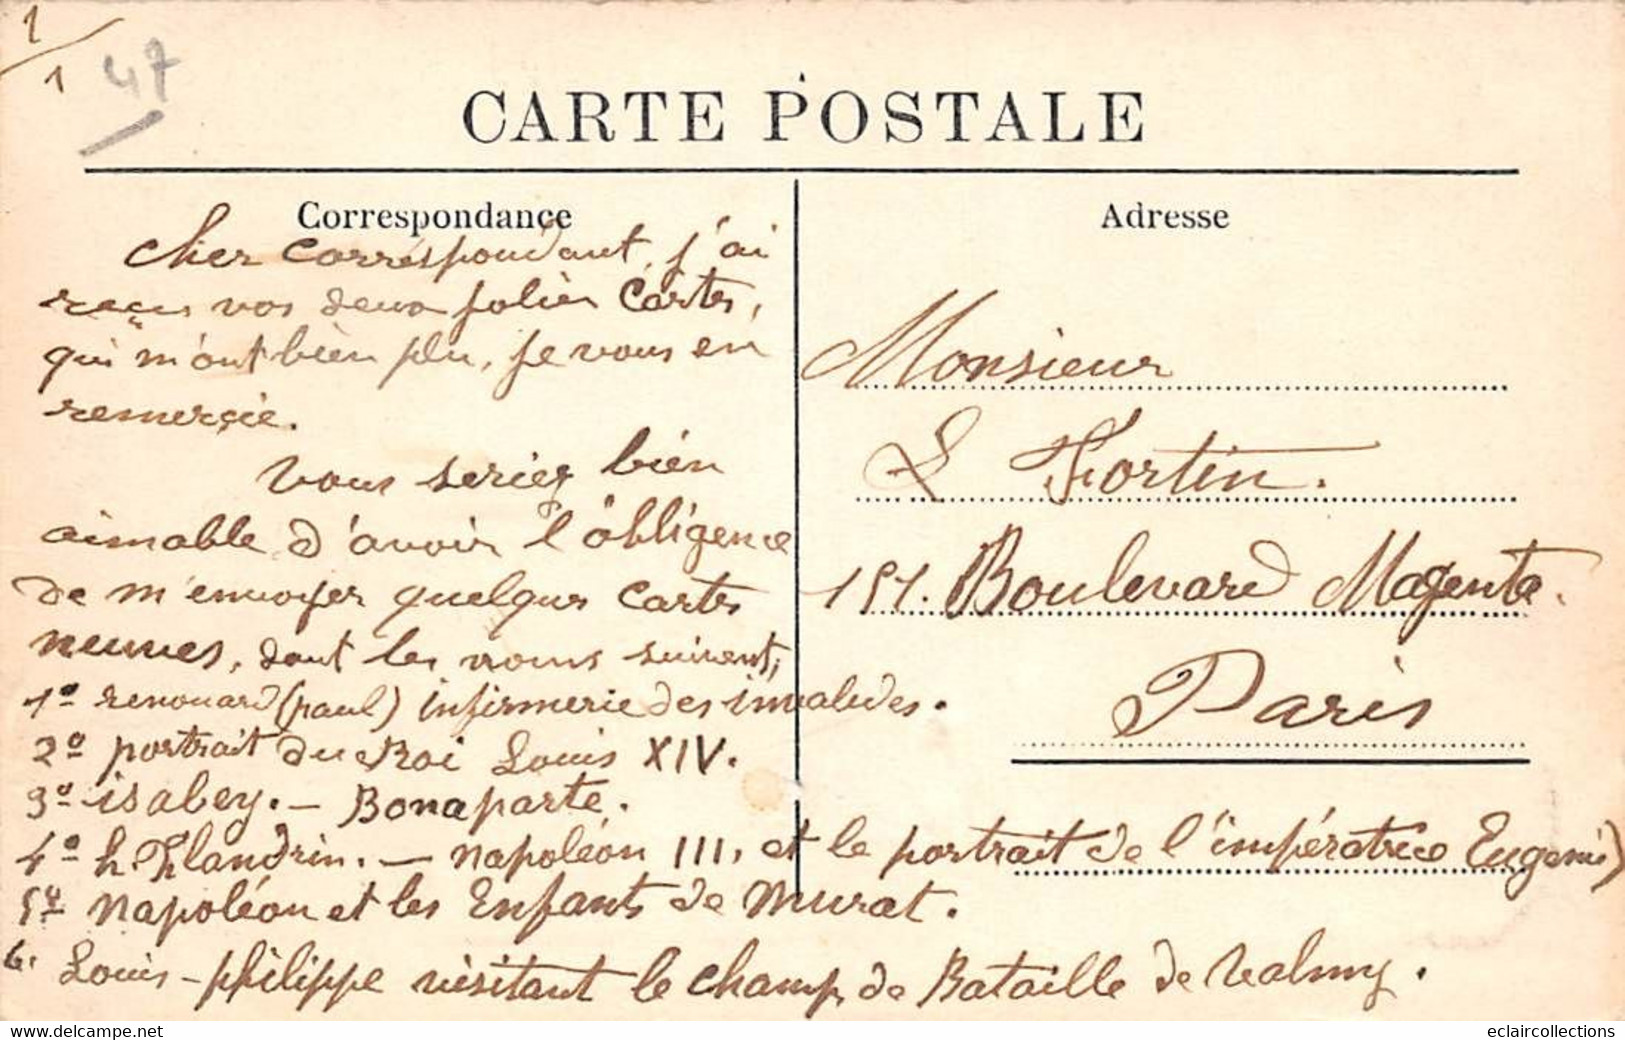 1/1
47
CARTE POSTALE
Correspondance
cher correspondant, j'ai
reçus vos deux jolies cartes,
qui m'ont bien plu, je vous en
remerçie.
Vous seriez bien
aimable d'avoir l'obligence
de m'envoyer quelques cartes
neuves, dont les noms suivent,
1º renouard (paul) infirmerie des invalides.
2º portrait du Roi Louis XIV.
3º isabey. — Bonaparte.
4º h. Flandrin. — Napoléon III, et le portrait de l'impératrice Eugenie)
5º Napoléon et les Enfants de Murat.
6. Louis-philippe visitant le champ de Bataille de Valmy.
Adresse
Monsieur
L Fortin.
151. Boulevard Magenta.
Paris
eclaircollections